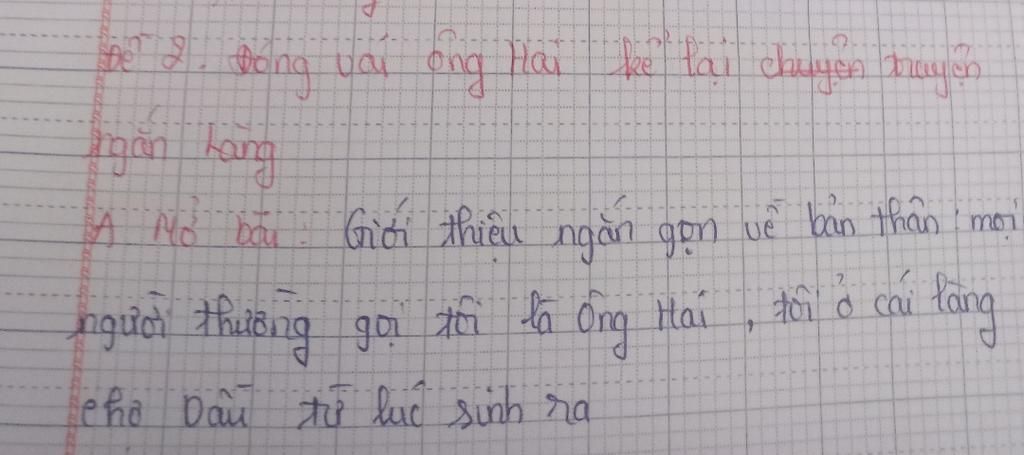 Đề 2. Đóng vai ông Hai kể lại chuyện truyện
ngắn Làng
A Mở bài: Giới thiệu ngắn gọn về bản thân mọi
người thường gọi tôi là Ông Hai, tôi ở cái làng
chợ Dầu từ lúc sinh ra